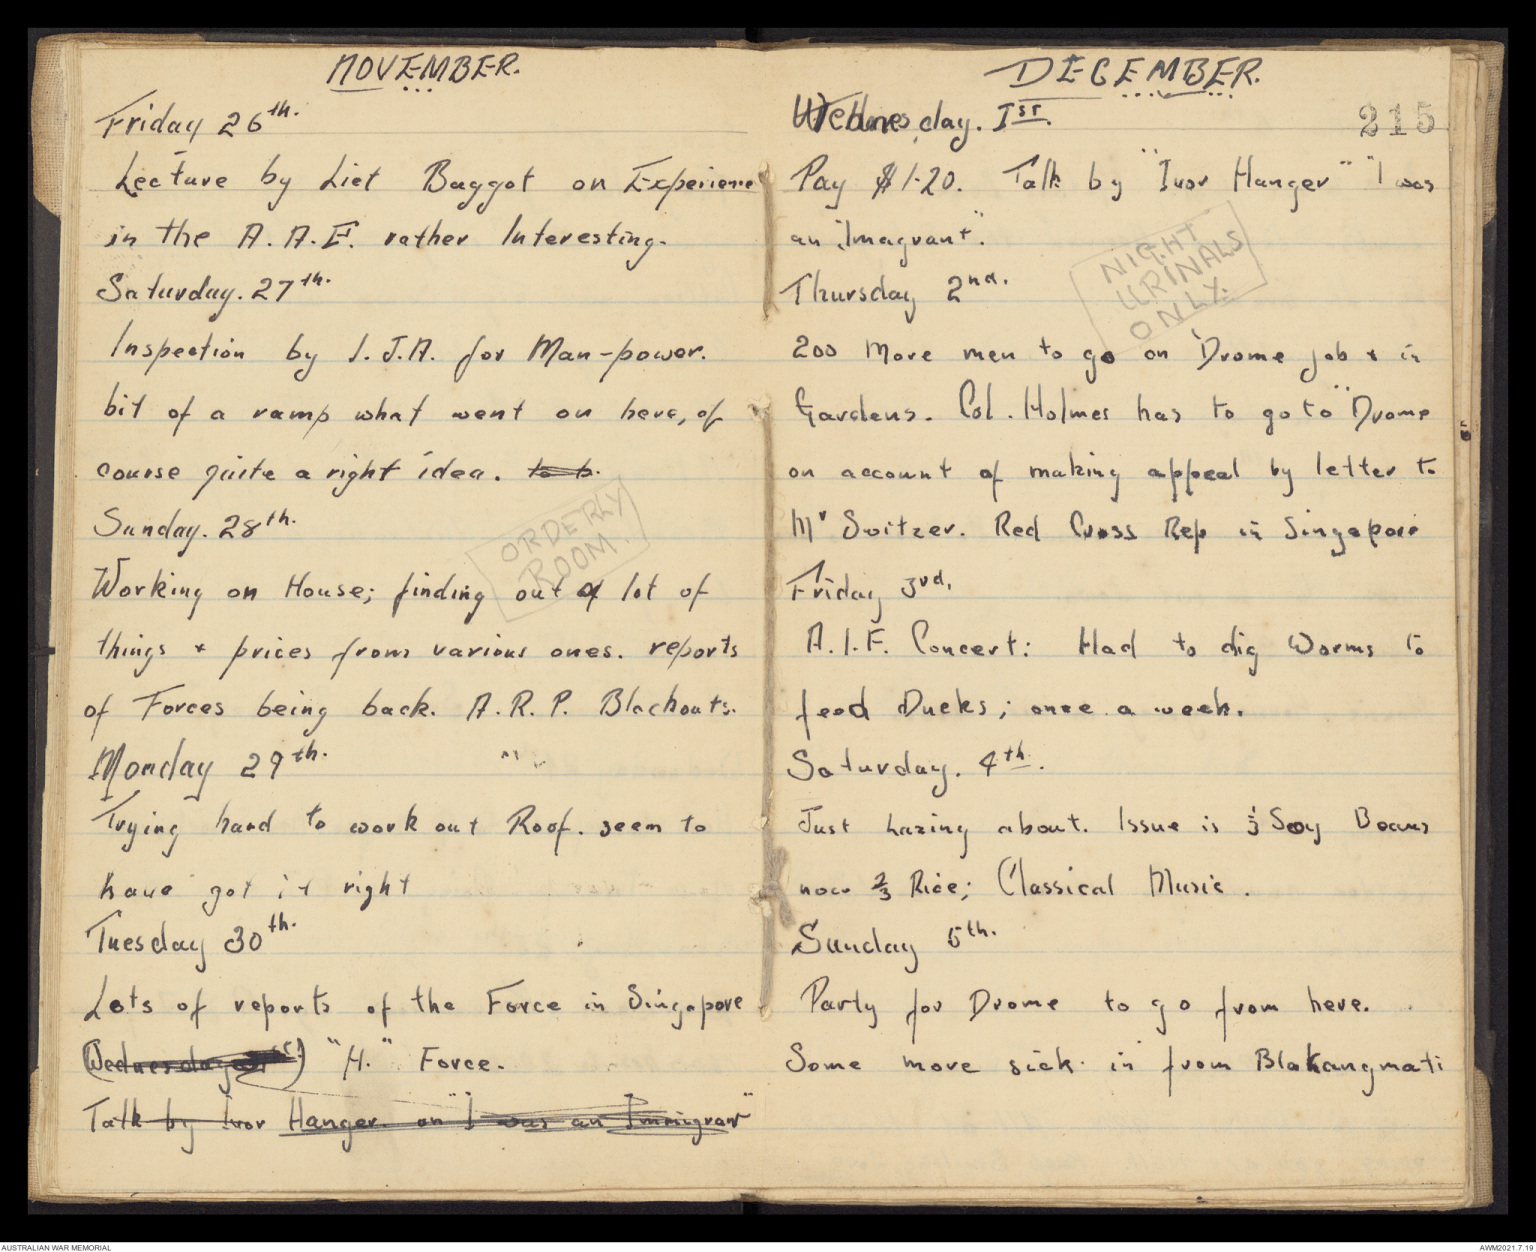 NOVEMBER.
Friday 26th.
Lecture by Liet Baggot on Experience
in the A.A.F. rather Interesting.
Saturday. 27th.
Inspection by I.J.A. for Man-power.
bit of a ramp what went on here, of
course quite a right idea. to b.
Sunday. 28th.
ORDERLY
ROOM.
Working on House; finding out a lot of
things + prices from various ones. reports
of Forces being back. A.R.P. Blackouts.
Monday 29th.
Trying hard to work out Roof. seem to
have got it right
Tuesday 30th.
Lots of reports of the Force in Singapore
(Wednesday 1st) "H." Force.
Talk by Ivor Hanger on "I was an Immigrant"
DECEMBER.
Wednesday. 1st.
215
Pay $1.20. Talk by "Ivor Hanger" "I was
an imagrant".
NIGHT
URINALS
ONLY.
Thursday 2nd.
200 More men to go on 'Drome job + in
Gardens. Col. Holmes has to go to "Drome
on account of making appeal by letter to
Mr Switzer. Red Cross Rep in Singapore
Friday 3rd.
A.I.F. Concert: Had to dig Worms to
feed Ducks; once a week.
Saturday. 4th.
Just lazing about. Issue is 1/3 Soy Beans
now 2/3 Rice; Classical Music.
Sunday 5th.
Party for Drome to go from here.
Some more sick in from Blakangmati
AUSTRALIAN WAR MEMORIAL
AWM2021.7.19